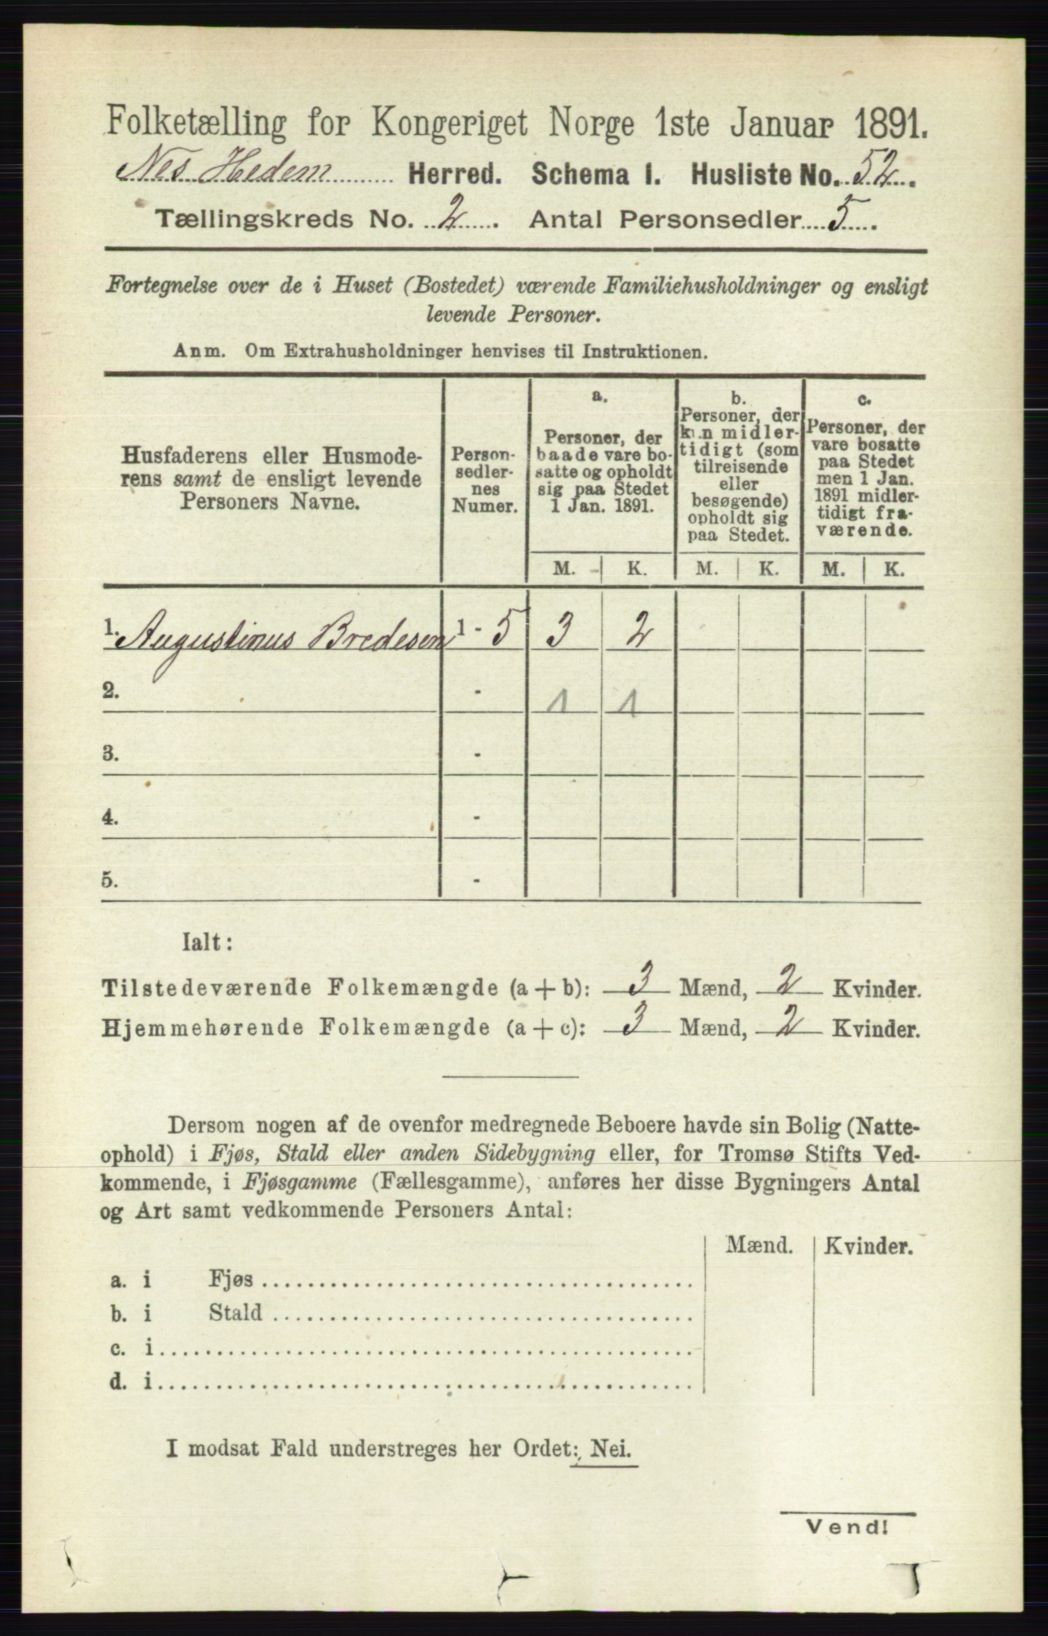 Folketælling for Kongeriget Norge 1ste Januar 1891.
Nes Hedem Herred. Schema I. Husliste No. 52.
Tællingskreds No. 2. Antal Personsedler 5.
Fortegnelse over de i Huset (Bostedet) værende Familiehusholdninger og ensligt
levende Personer.
Anm. Om Extrahusholdninger henvises til Instruktionen.
Husfaderens eller Husmode-
rens samt de ensligt levende
Personers Navne.
Person-
sedler-
nes
Numer.
a.
Personer, der
baade vare bo-
satte og opholdt
sig paa Stedet
1 Jan. 1891.
b.
Personer, der
kun midler-
tidigt (som
tilreisende
eller
besøgende)
opholdt sig
paa Stedet.
c.
Personer, der
vare bosatte
paa Stedet
men 1 Jan.
1891 midler-
tidigt fra-
værende.
M. K. M. K. M. K.
1. Augustinus Bredesen 1 - 5 3 2
2. - 1 1
3. -
4. -
5. -
Ialt:
Tilstedeværende Folkemængde (a + b): 3 Mænd, 2 Kvinder.
Hjemmehørende Folkemængde (a + c): 3 Mænd, 2 Kvinder.
Dersom nogen af de ovenfor medregnede Beboere havde sin Bolig (Natte-
ophold) i Fjøs, Stald eller anden Sidebygning eller, for Tromsø Stifts Ved-
kommende, i Fjøsgamme (Fællesgamme), anføres her disse Bygningers Antal
og Art samt vedkommende Personers Antal:
Mænd. Kvinder.
a. i Fjøs
b. i Stald
c. i
d. i
I modsat Fald understreges her Ordet: Nei.
Vend!